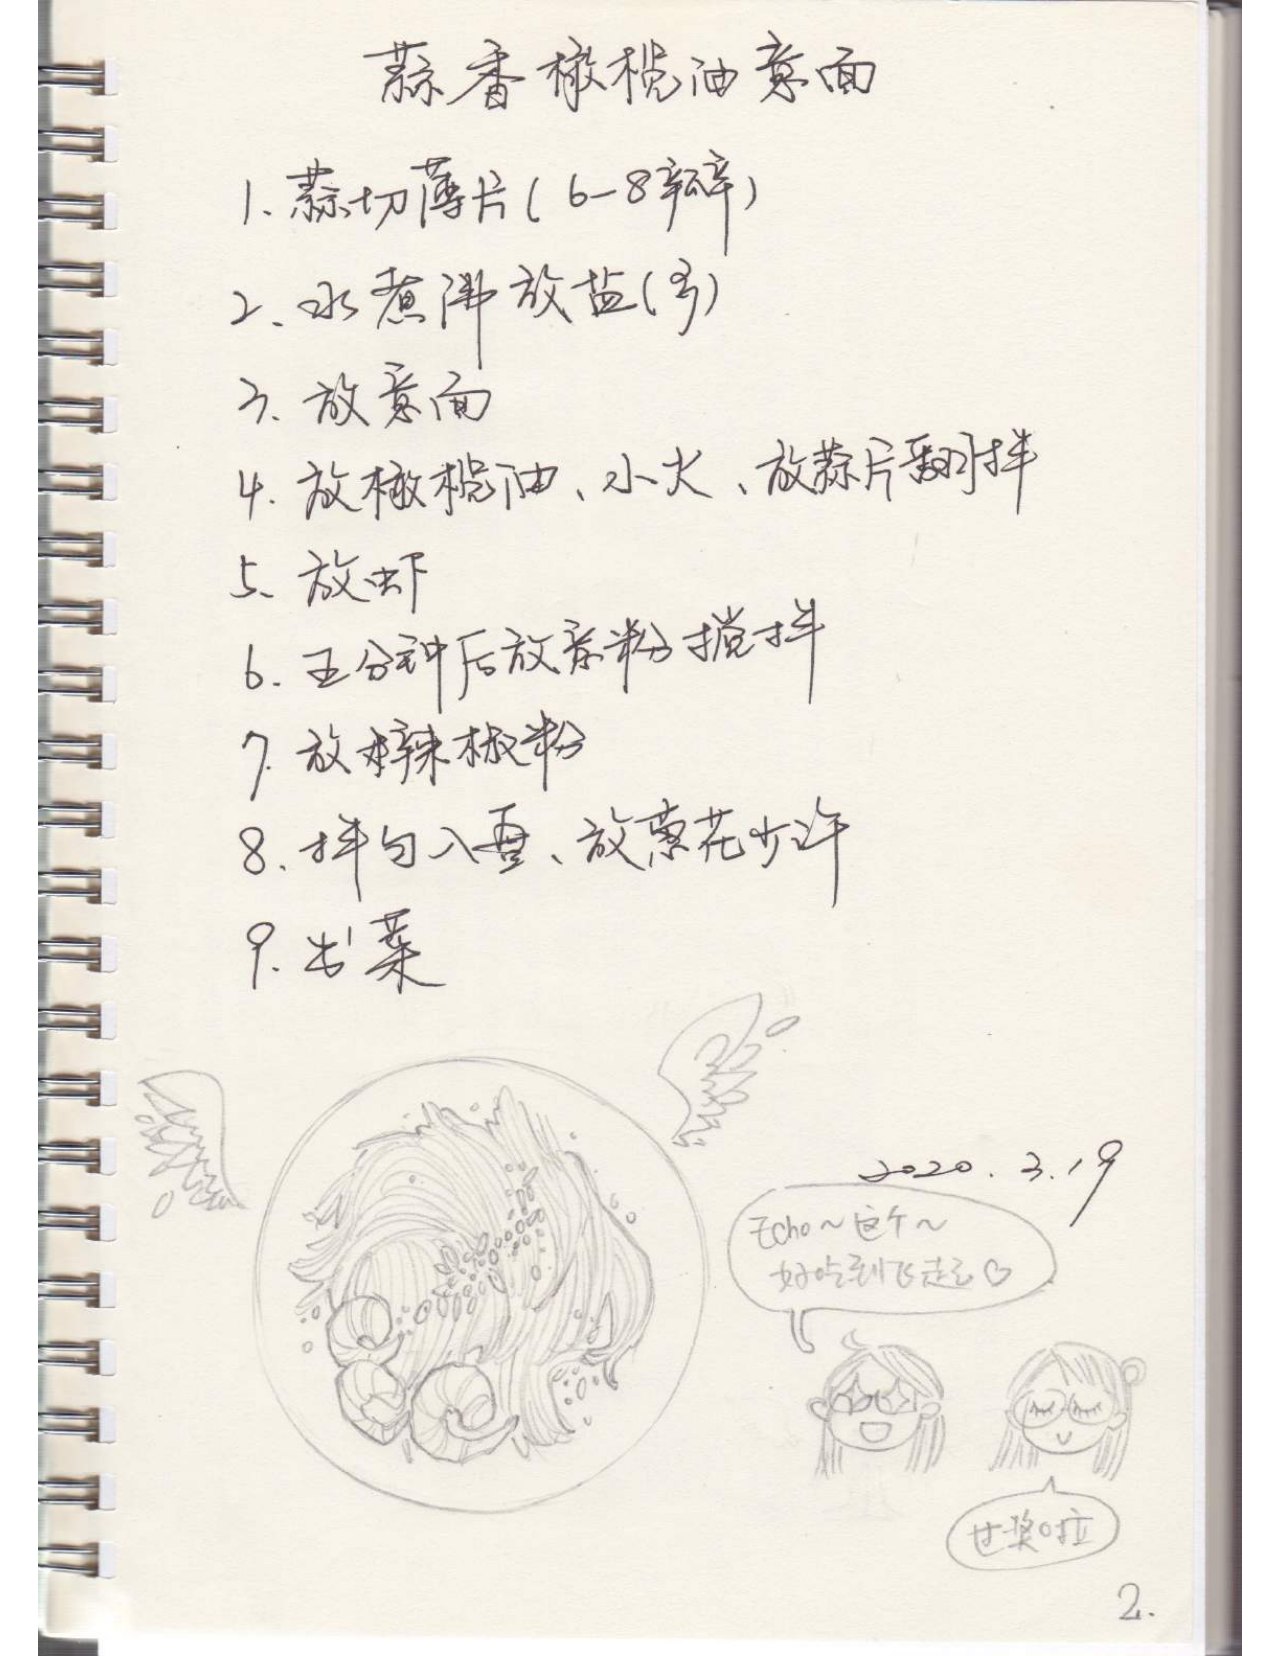 蒜香橄榄油意面
1. 蒜切薄片(6-8瓣)
2. 水煮沸放盐(多)
3. 放意面
4. 放橄榄油、小火、放蒜片翻拌
5. 放虾
6. 五分钟后放意粉搅拌
7. 放辣椒粉
8. 拌匀入壹、放葱花少许
9. 出菜
2020.3.19
Echo～这个～
好吃到飞起♡
过奖啦
2.